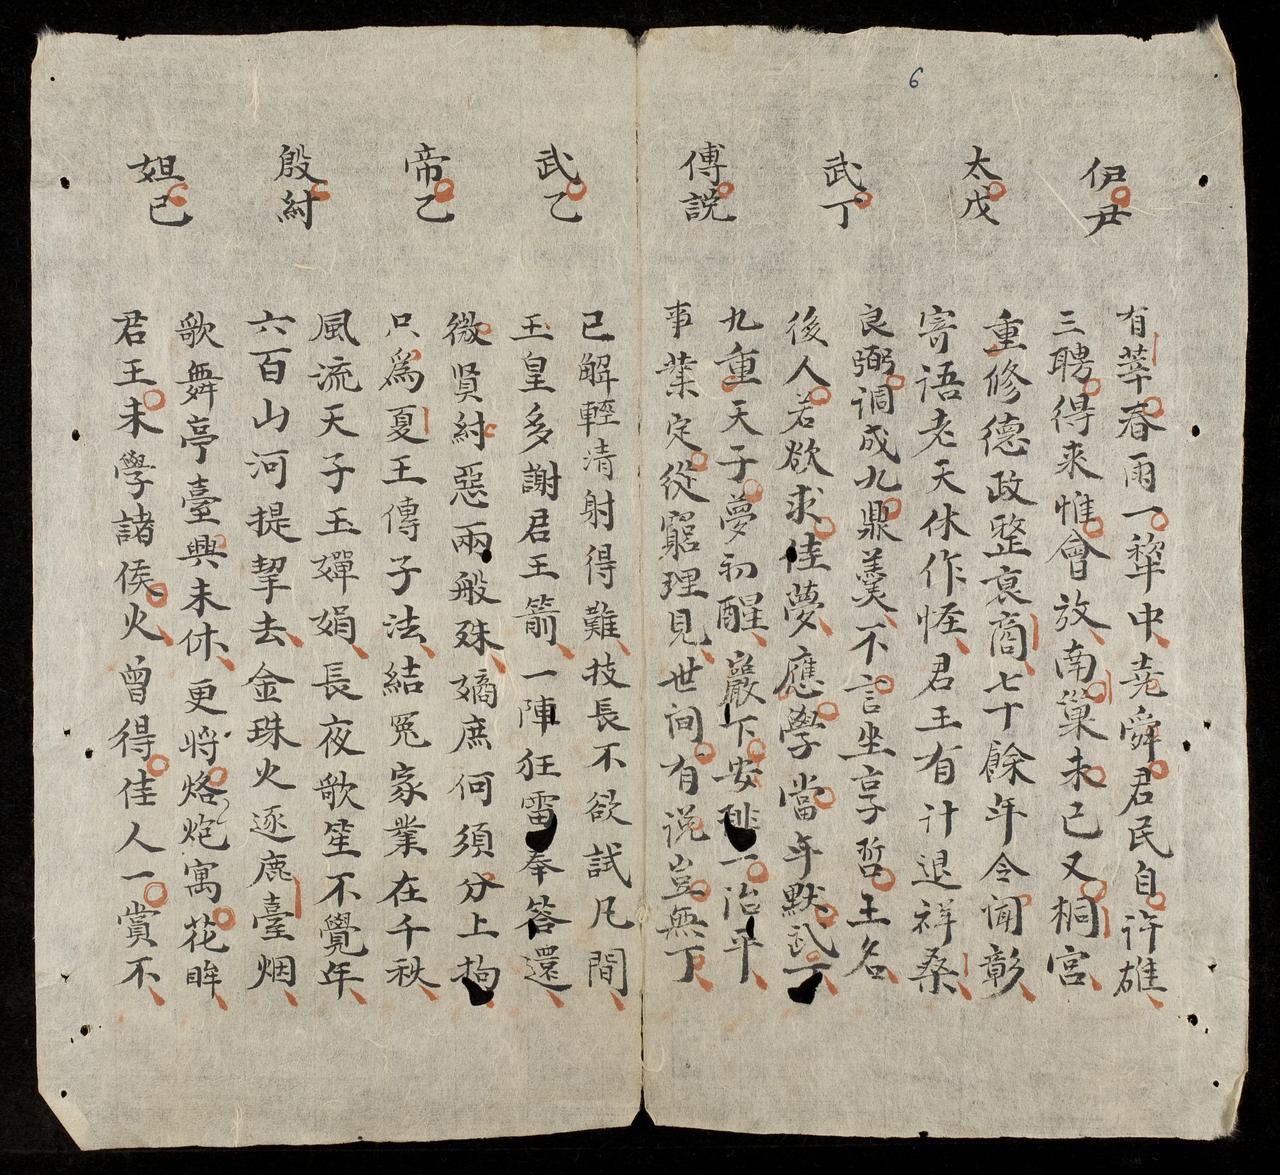 6
伊尹
有莘春雨一犂中堯舜君民自許雄
三聘得來惟會放南巢未已又桐宮
太戊
重修德政整衰商七十餘年令闻彰
寄語老天休作怪君王有计退祥桑
武丁
良弼调成九鼎羹不言坐享哲王名
後人若欲求佳夢應學當年默武丁
傅説
九重天子夢初醒巖下安排一治平
事業定從窮理見世间有说豈無丁
武乙
已解輕清射得難技長不欲試凡間
玉皇多謝君王箭一陣狂雷奉答還
帝乙
微賢紂惡兩般殊嫡庶何須分上拘
只爲夏王傳子法結冤家業在千秋
殷紂
風流天子玉嬋娟長夜歌笙不覺年
六百山河提挈去金珠火逐鹿臺烟
妲己
歌舞亭臺興未休更將烙炮寓花眸
君王未學諸侯火曾得佳人一賞不